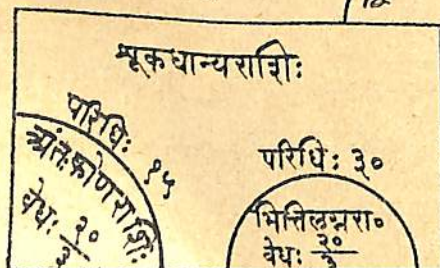 शूकधान्यराशिः
परिधिः १५
अंतःकोणराशिः
वेधः २०
३
परिधिः ३०
भित्तिलग्नरा०
वेधः २०
३